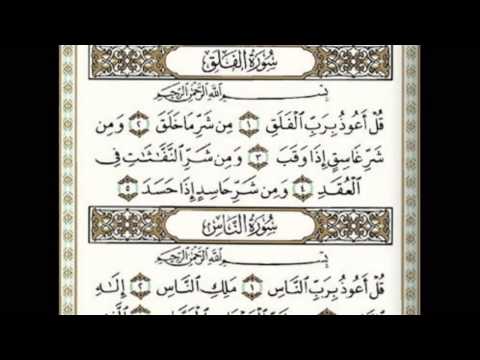 سُورَةُ الفَلَقِ
بِسْمِ اللَّهِ الرَّحْمَٰنِ الرَّحِيمِ
قُلْ أَعُوذُ بِرَبِّ الْفَلَقِ ١ مِن شَرِّ مَا خَلَقَ ٢ وَمِن
شَرِّ غَاسِقٍ إِذَا وَقَبَ ٣ وَمِن شَرِّ النَّفَّٰثَٰتِ فِى
الْعُقَدِ ٤ وَمِن شَرِّ حَاسِدٍ إِذَا حَسَدَ ٥
سُورَةُ النَّاسِ
بِسْمِ اللَّهِ الرَّحْمَٰنِ الرَّحِيمِ
قُلْ أَعُوذُ بِرَبِّ النَّاسِ ١ مَلِكِ النَّاسِ ٢ إِلَٰهِ